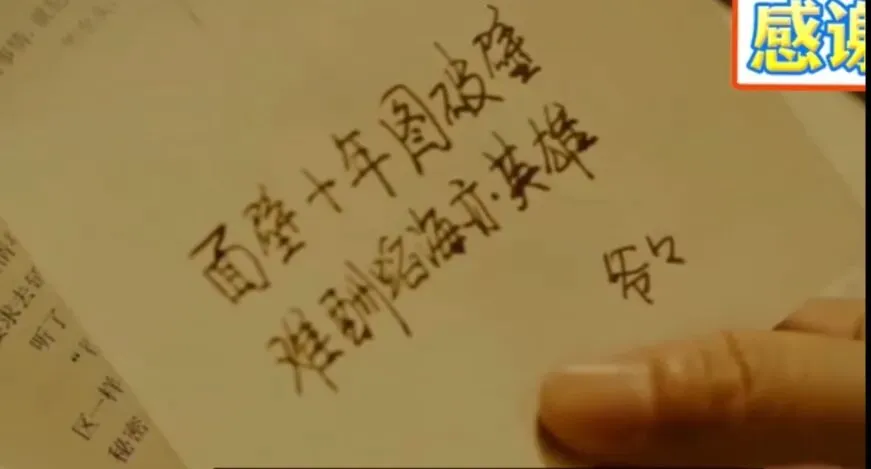 感谢
事情,
面壁十年图破壁
难酬蹈海亦英雄
求去
听了
区一样
秘密